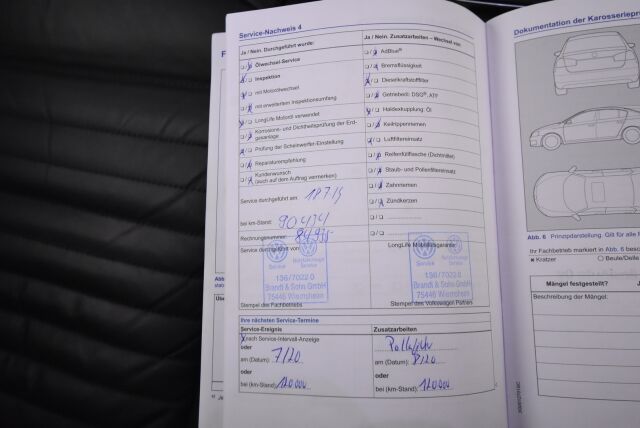 Service-Nachweis 4
Ja / Nein. Durchgeführt wurde:
Ölwechsel-Service
Inspektion
mit Motorölwechsel
mit erweitertem Inspektionsumfang
LongLife Motoröl verwendet
Korrosions- und Dichtheitsprüfung der Erd-
gasanlage
Prüfung der Scheinwerfer-Einstellung
Reparaturempfehlung
Kundenwunsch
(auch auf dem Auftrag vermerken)
Service durchgeführt am:
bei km-Stand:
Rechnungsnummer:
Service durchgeführt von:
Service
136/7022 0
Brandl & Sohn GmbH
75446 Wiernsheim
Stempel des Fachbetriebs
Ja / Nein. Zusatzarbeiten – Wechsel von:
AdBlue®
Bremsflüssigkeit
Dieselkraftstofffilter
Getriebeöl: DSG®, ATF
Haldexkupplung: Öl
Keilrippenriemen
Luftfiltereinsatz
Reifenfüllflasche (Dichtmittel)
Staub- und Pollenfiltereinsatz
Zahnriemen
Zündkerzen
LongLife Mobilitätsgarantie
Service
136/7022 0
Brandl & Sohn GmbH
75446 Wiernsheim
Stempel des Volkswagen Partners
Ihre nächsten Service-Termine
Service-Ereignis
nach Service-Intervall-Anzeige
oder
am (Datum): 7/20
oder
bei (km-Stand): 120000
Zusatzarbeiten
am (Datum): 8/20
oder
bei (km-Stand): 120.000
Dokumentation der Karosserieprü
Abb. 6 Prinzipdarstellung. Gilt für alle
Ihr Fachbetrieb markiert in Abb. 6 besc
x Kratzer
Beule/Delle
Mängel festgestellt?
Beschreibung der Mängel: